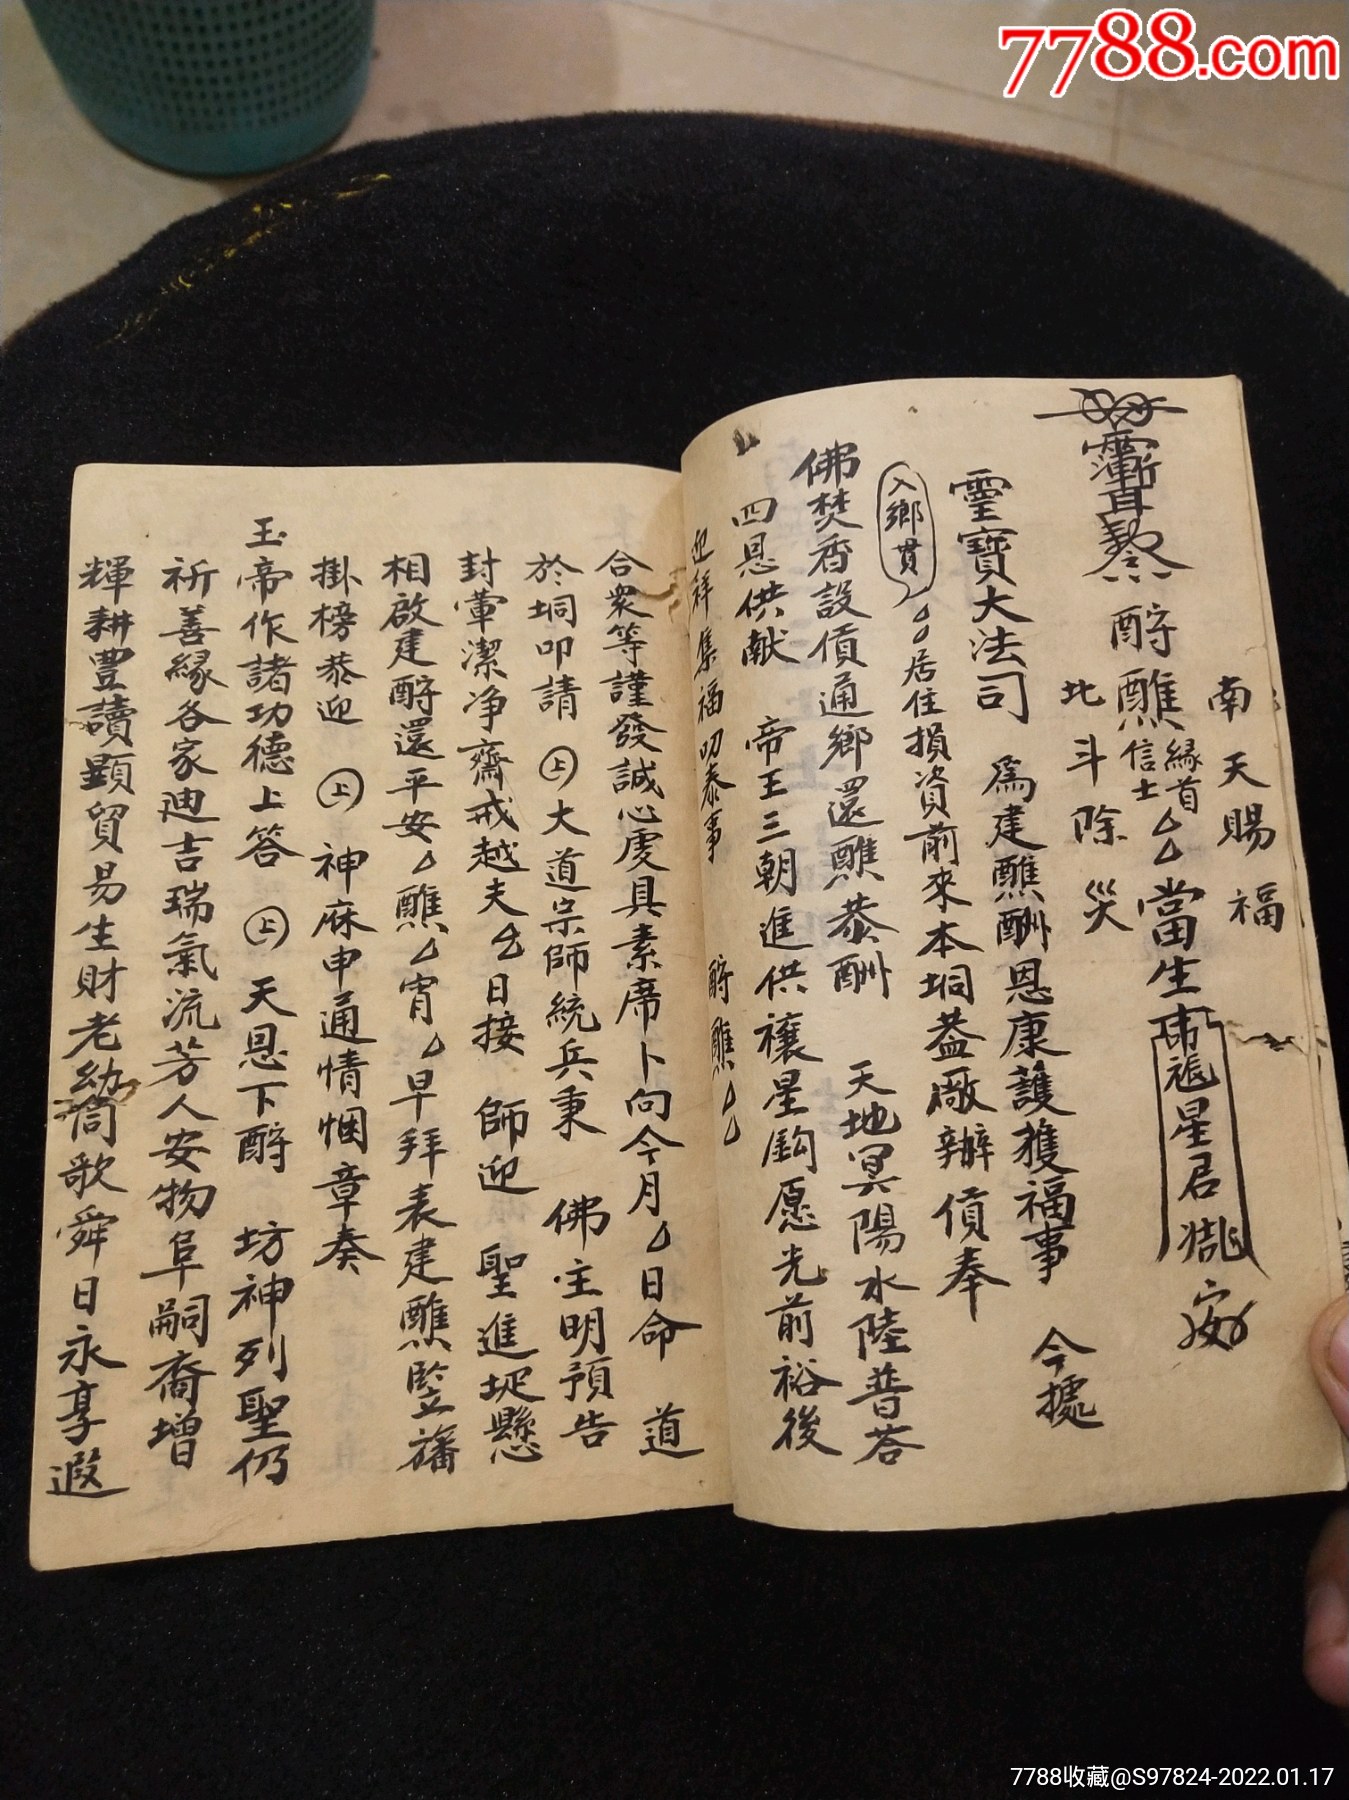 7788.com
南天賜福
北斗除災
酧醮緣首信士△△當生 星君 安
靈寶大法司 為建醮酬恩康護獲福事 今據
入鄉貫 △△居住損資前來本垌蓋廠辦償奉
佛焚香設償通鄉還醮恭酬 天地冥陽水陸普荅
四恩供献 帝王三朝進供禳星鈎愿光前裕後
迎祥集福叨泰事 酧醮△△
合眾等謹發誠心虔具素席卜向今月△日命 道
於垌叩請 上 大道宗師統兵秉 佛主明預告
封葷潔净齋戒越夫△日接 師迎 聖進垊懸
相啟建酧還平安△醮△宵△早拜表建醮竪旛
掛榜恭迎 上 神庥申通情悃章奏
玉帝作諸功德上答 上 天恩下酧 坊神列聖仍
祈善緣各家迪吉瑞氣流芳人安物阜嗣裔增
輝耕豐讀顯貿易生財老幼同歌舜日永享遐
7788收藏@S97824-2022.01.17